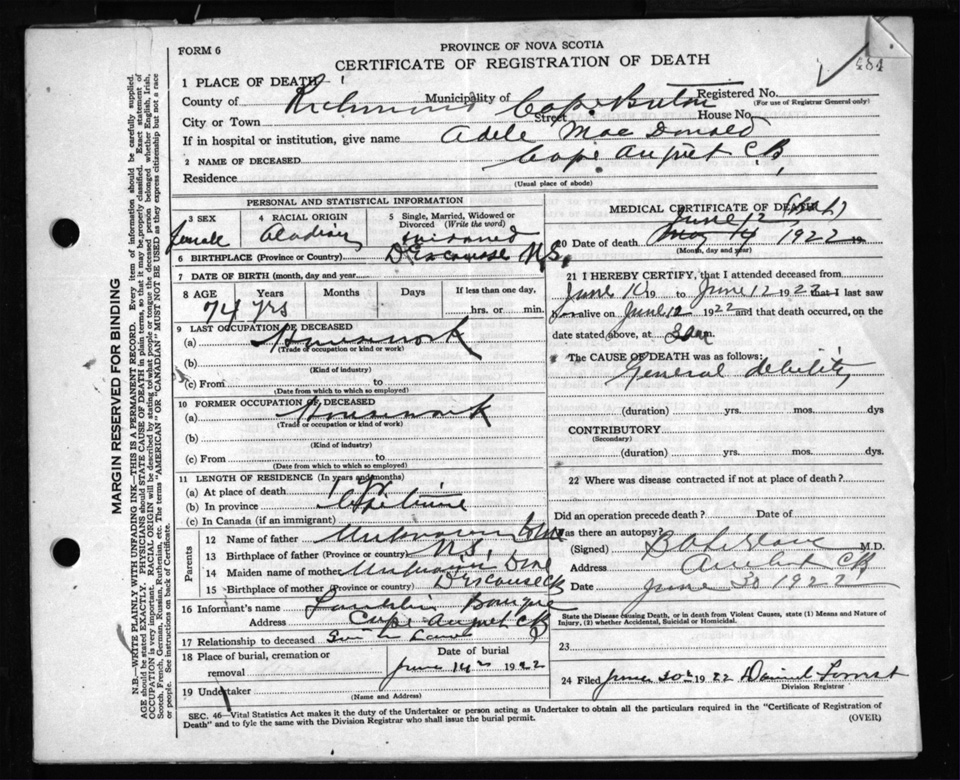 FORM 6
PROVINCE OF NOVA SCOTIA
CERTIFICATE OF REGISTRATION OF DEATH
484
1 PLACE OF DEATH
County of Richmond Municipality of Cape Breton Registered No.
(For use of Registrar General only)
City or Town Street House No.
If in hospital or institution, give name
2 NAME OF DECEASED Adele MacDonald
Residence Cape August CB
(Usual place of abode)
PERSONAL AND STATISTICAL INFORMATION
3 SEX
female
4 RACIAL ORIGIN
Acadian
5 Single, Married, Widowed or Divorced (Write the word)
Widowed
6 BIRTHPLACE (Province or Country) D'Escousse N.S.
7 DATE OF BIRTH (month, day and year)
8 AGE Years Months Days If less than one day,
74 yrs hrs. or min.
9 LAST OCCUPATION OF DECEASED
(a) Housework
(Trade or occupation or kind or work)
(b)
(Kind of industry)
(c) From to
(Date from which to which so employed)
10 FORMER OCCUPATION OF DECEASED
(a) Housework
(Trade or occupation or kind of work)
(b)
(Kind of industry)
(c) From to
(Date from which to which so employed)
11 LENGTH OF RESIDENCE (In years and months)
(a) At place of death
(b) In province Life time
(c) In Canada (if an immigrant)
Parents
12 Name of father Unknown
13 Birthplace of father (Province or country) N.S.
14 Maiden name of mother Unknown
15 Birthplace of mother (Province or country) D'Escousse CB
16 Informant's name
Address Cape August CB
17 Relationship to deceased Son in Law
18 Place of burial, cremation or removal
Date of burial
June 14th 1922
19 Undertaker
(Name and Address)
MEDICAL CERTIFICATE OF DEATH
June 12
20 Date of death May 14 1922 19
(Month, day and year)
21 I HEREBY CERTIFY, that I attended deceased from
June 10 19 to June 12 1922 that I last saw
h alive on June 12 1922 and that death occurred, on the
date stated above, at
The CAUSE OF DEATH was as follows:
General debility
(duration) yrs. mos. dys
CONTRIBUTORY
(Secondary)
(duration) yrs. mos. dys.
22 Where was disease contracted if not at place of death?
Did an operation precede death? Date of
Was there an autopsy?
(Signed) M.D.
Address Arichat CB
Date June 30 1922
State the Disease Causing Death, or in death from Violent Causes, state (1) Means and Nature of Injury, (2) whether Accidental, Suicidal or Homicidal.
23
24 Filed June 30th 1922 Daniel
Division Registrar
SEC. 46—Vital Statistics Act makes it the duty of the Undertaker or person acting as Undertaker to obtain all the particulars required in the "Certificate of Registration of
Death" and to fyle the same with the Division Registrar who shall issue the burial permit.
(OVER)
MARGIN RESERVED FOR BINDING
N.B.—WRITE PLAINLY WITH UNFADING INK—THIS IS A PERMANENT RECORD. Every item of information should be carefully supplied.
AGE should be stated EXACTLY. PHYSICIANS should STATE CAUSE OF DEATH in plain terms, so that it may be properly classified. Exact statement of
OCCUPATION is very important. RACIAL ORIGIN will be described by stating to what people or tongue the deceased person belonged whether English, Irish,
Scotch, French, German, Russian, Ruthenian, etc. The terms "AMERICAN" OR "CANADIAN" MUST NOT BE USED as they express citizenship but not a race
or people. See instructions on back of Certificate.